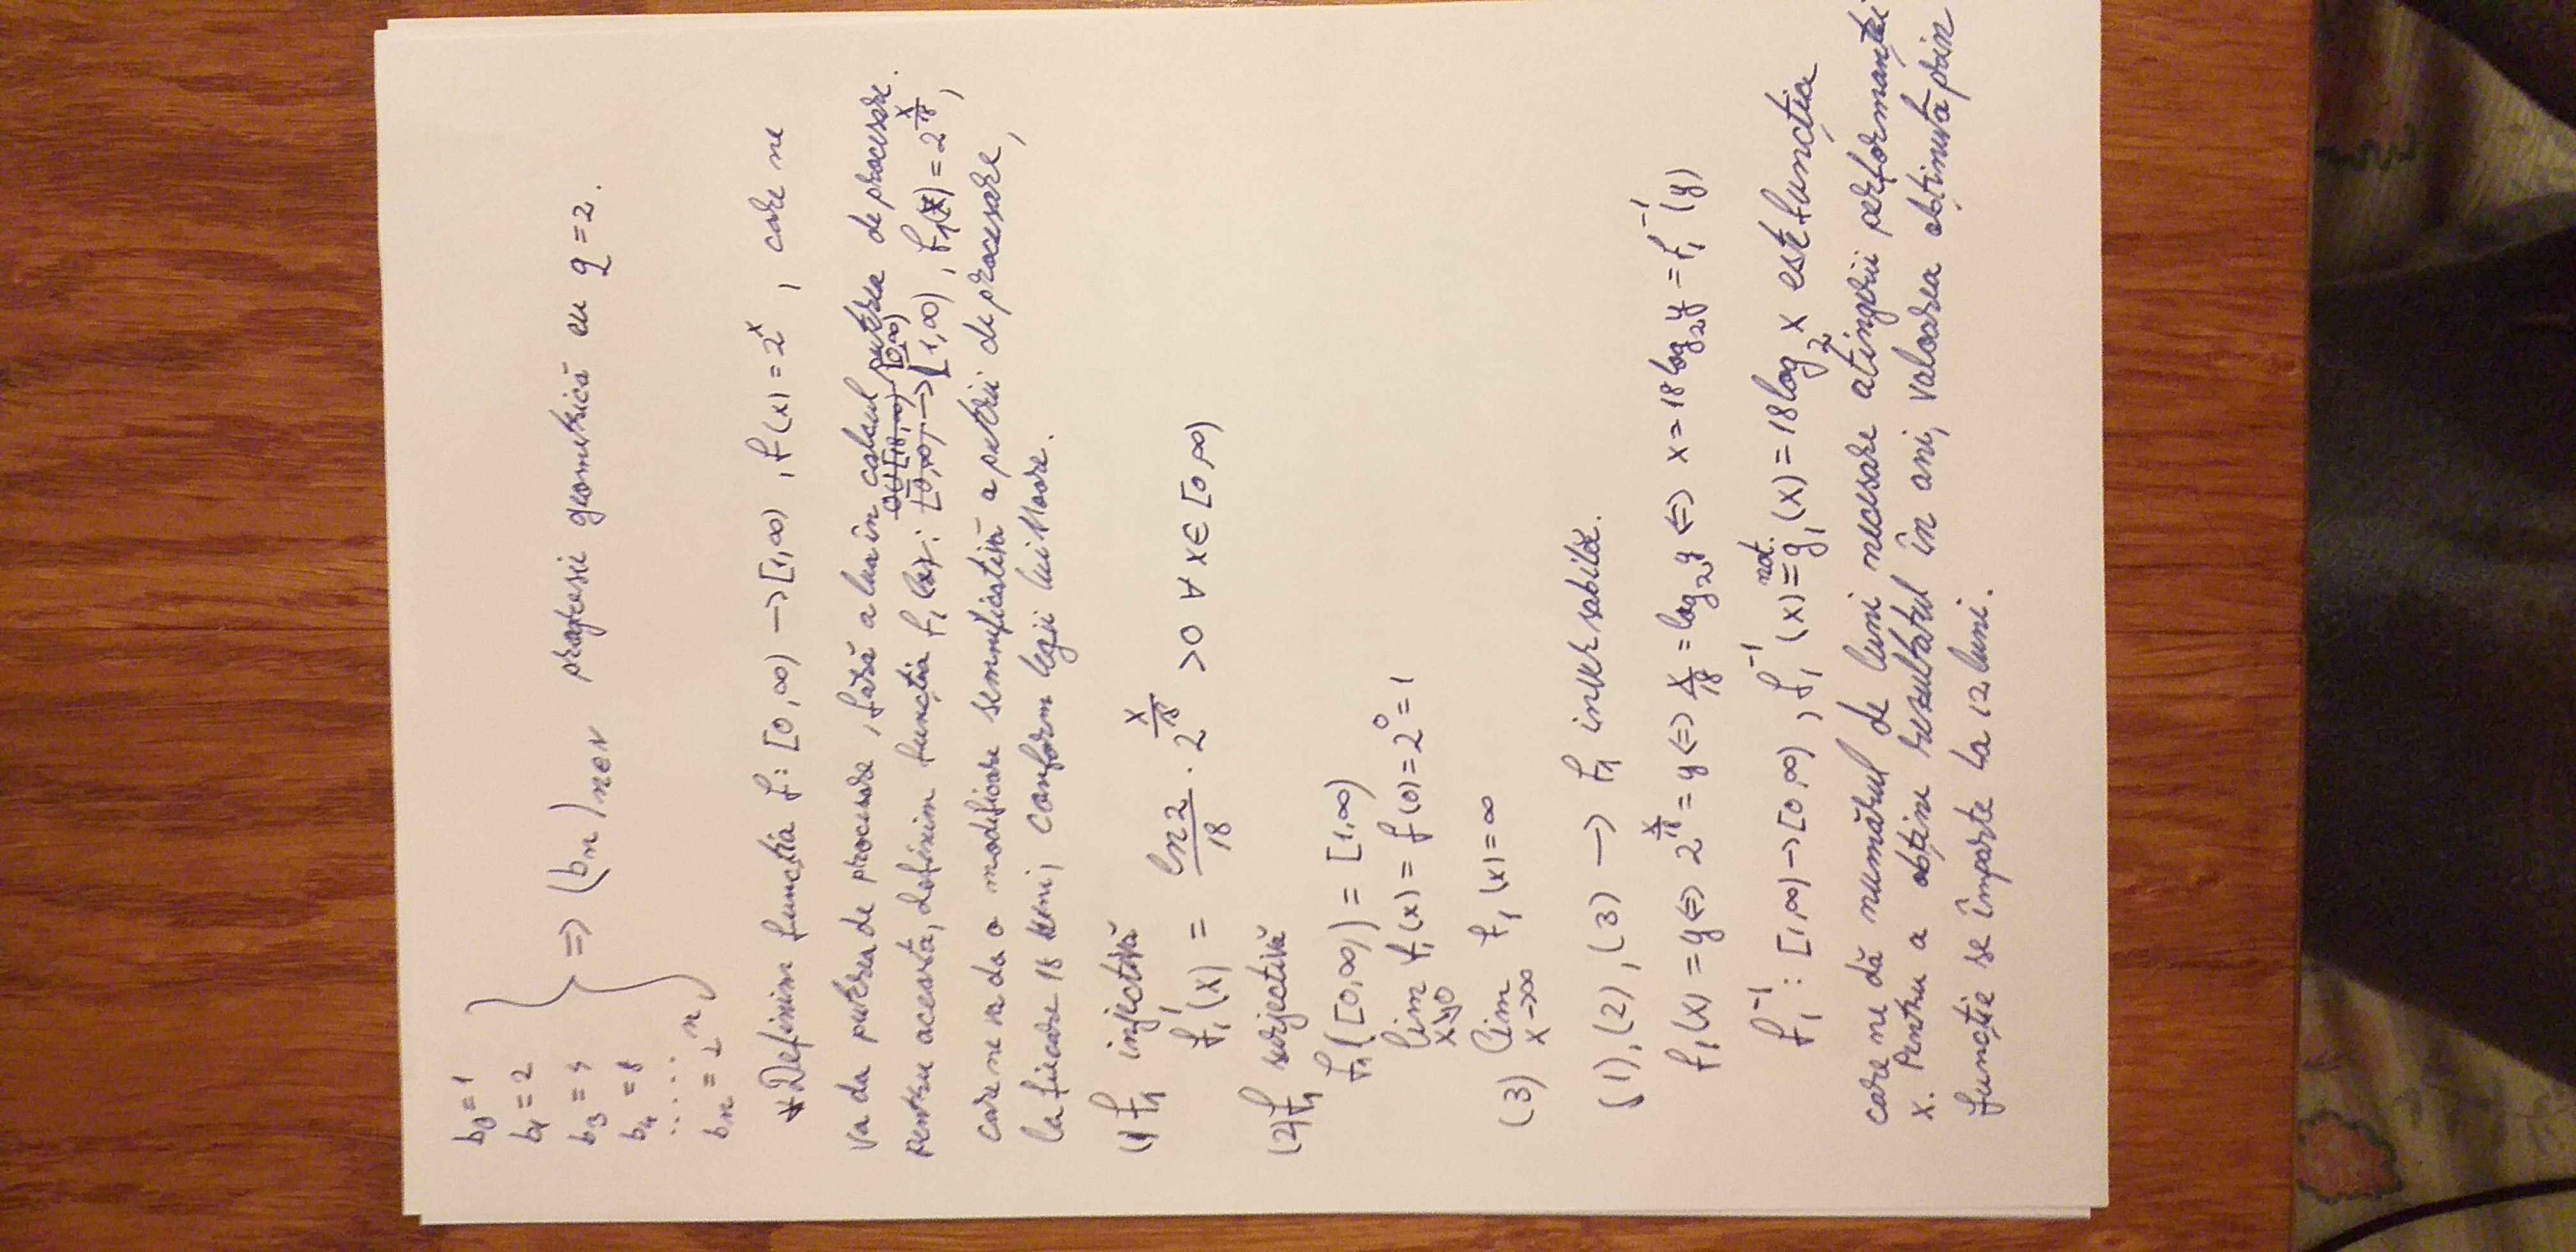 b₀ = 1
b₁ = 2
b₃ = 4
b₄ = 8
.....
bₙ = 2ⁿ
⇒ (bₙ)ₙ∈ℕ progresie geometrică cu q = 2.
* Definim funcția f: [0,∞) → [1,∞), f(x) = 2^x, care ne
va da puterea de procesare, fără a lua în calcul puterea de procesare.
[0,∞)
Pentru aceasta, definim funcția f₁: → [1,∞), f₁(x) = 2^(x/18),
care ne va da o modificare semnificativă a puterii de procesare,
la fiecare 18 luni, conform legii lui Moore.
(1) f₁ injectivă
f₁'(x) = ln2/18 · 2^(x/18) >0 ∀ x∈ [0,∞)
(2) f₁ surjectivă
f₁([0,∞)) = [1,∞)
lim x↘0 f₁(x) = f(0) = 2⁰ = 1
(3) lim x→∞ f₁(x) = ∞
(1), (2), (3) → f₁ inversabilă.
f₁(x) = y ⇔ 2^(x/18) = y ⇔ x/18 = log₂y ⇔ x = 18log₂y = f₁⁻¹(y)
f₁⁻¹: [1,∞) → [0,∞), f₁⁻¹(x) not.= g₁(x) = 18log₂x este funcția
care ne dă numărul de luni necesare atingerii performanței
x. Pentru a obține rezultatul în ani, valoarea obținută prin
funcție se împarte la 12 luni.